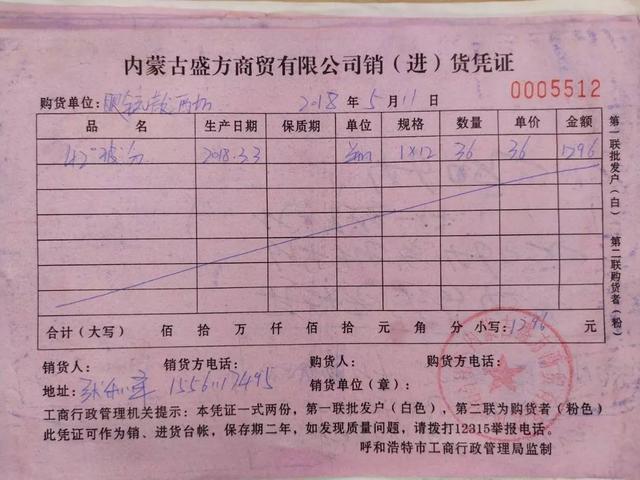 内蒙古盛方商贸有限公司销（进）货凭证
0005512
购货单位： 2018 年 5 月 11 日
品 名 生产日期 保质期 单位 规格 数量 单价 金额
42° 2018.3.3 1×12 36 36 1296
合计（大写） 佰 拾 万 仟 佰 拾 元 角 分 小写：1296 元
销货人： 销货方电话： 购货人： 购货方电话：
地址： 15561117495 销货单位（章）：
工商行政管理机关提示：本凭证一式两份，第一联批发户（白色），第二联为购货者（粉色）
此凭证可作为销、进货台帐，保存期二年，如发现质量问题，请拨打12315举报电话。
呼和浩特市工商行政管理局监制
第一联批发户（白） 第二联购货者（粉）